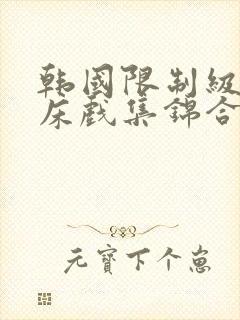 韩國限制级
床戲集錦合
元寶下个崽